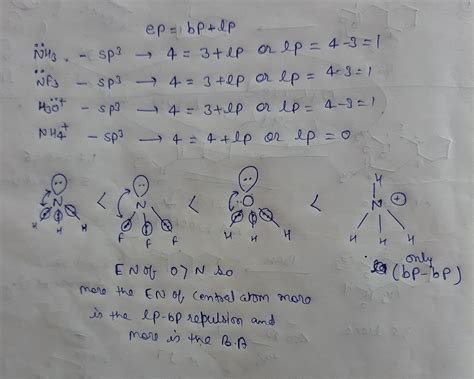 ep = bp + lp
N̈H3 - sp3 → 4 = 3 + lp or lp = 4-3 = 1
N̈F3 - sp3 → 4 = 3 + lp or lp = 4-3 = 1
H3Ö+ - sp3 → 4 = 3 + lp or lp = 4-3 = 1
NH4+ - sp3 → 4 = 4 + lp or lp = 0
H
N < N < O < N +
H H H F F F H H H H H
only
(bp-bp)
EN of O > N so
more the EN of central atom more
is the lp-bp repulsion and
more is the B.A